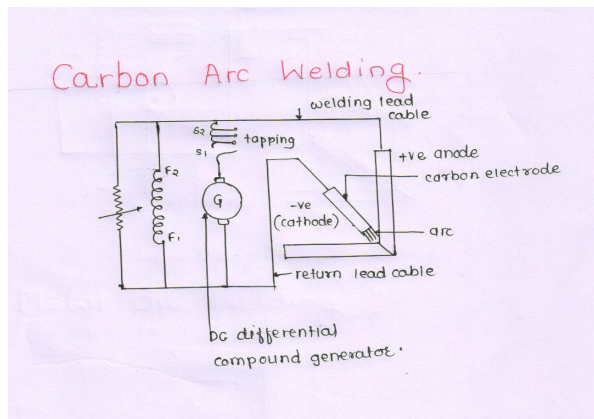 Carbon Arc Welding.
welding lead
cable
S2
tapping
S1
+ve anode
F2
carbon electrode
G
-ve
(cathode)
arc
F1
return lead cable
DC differential
compound generator.